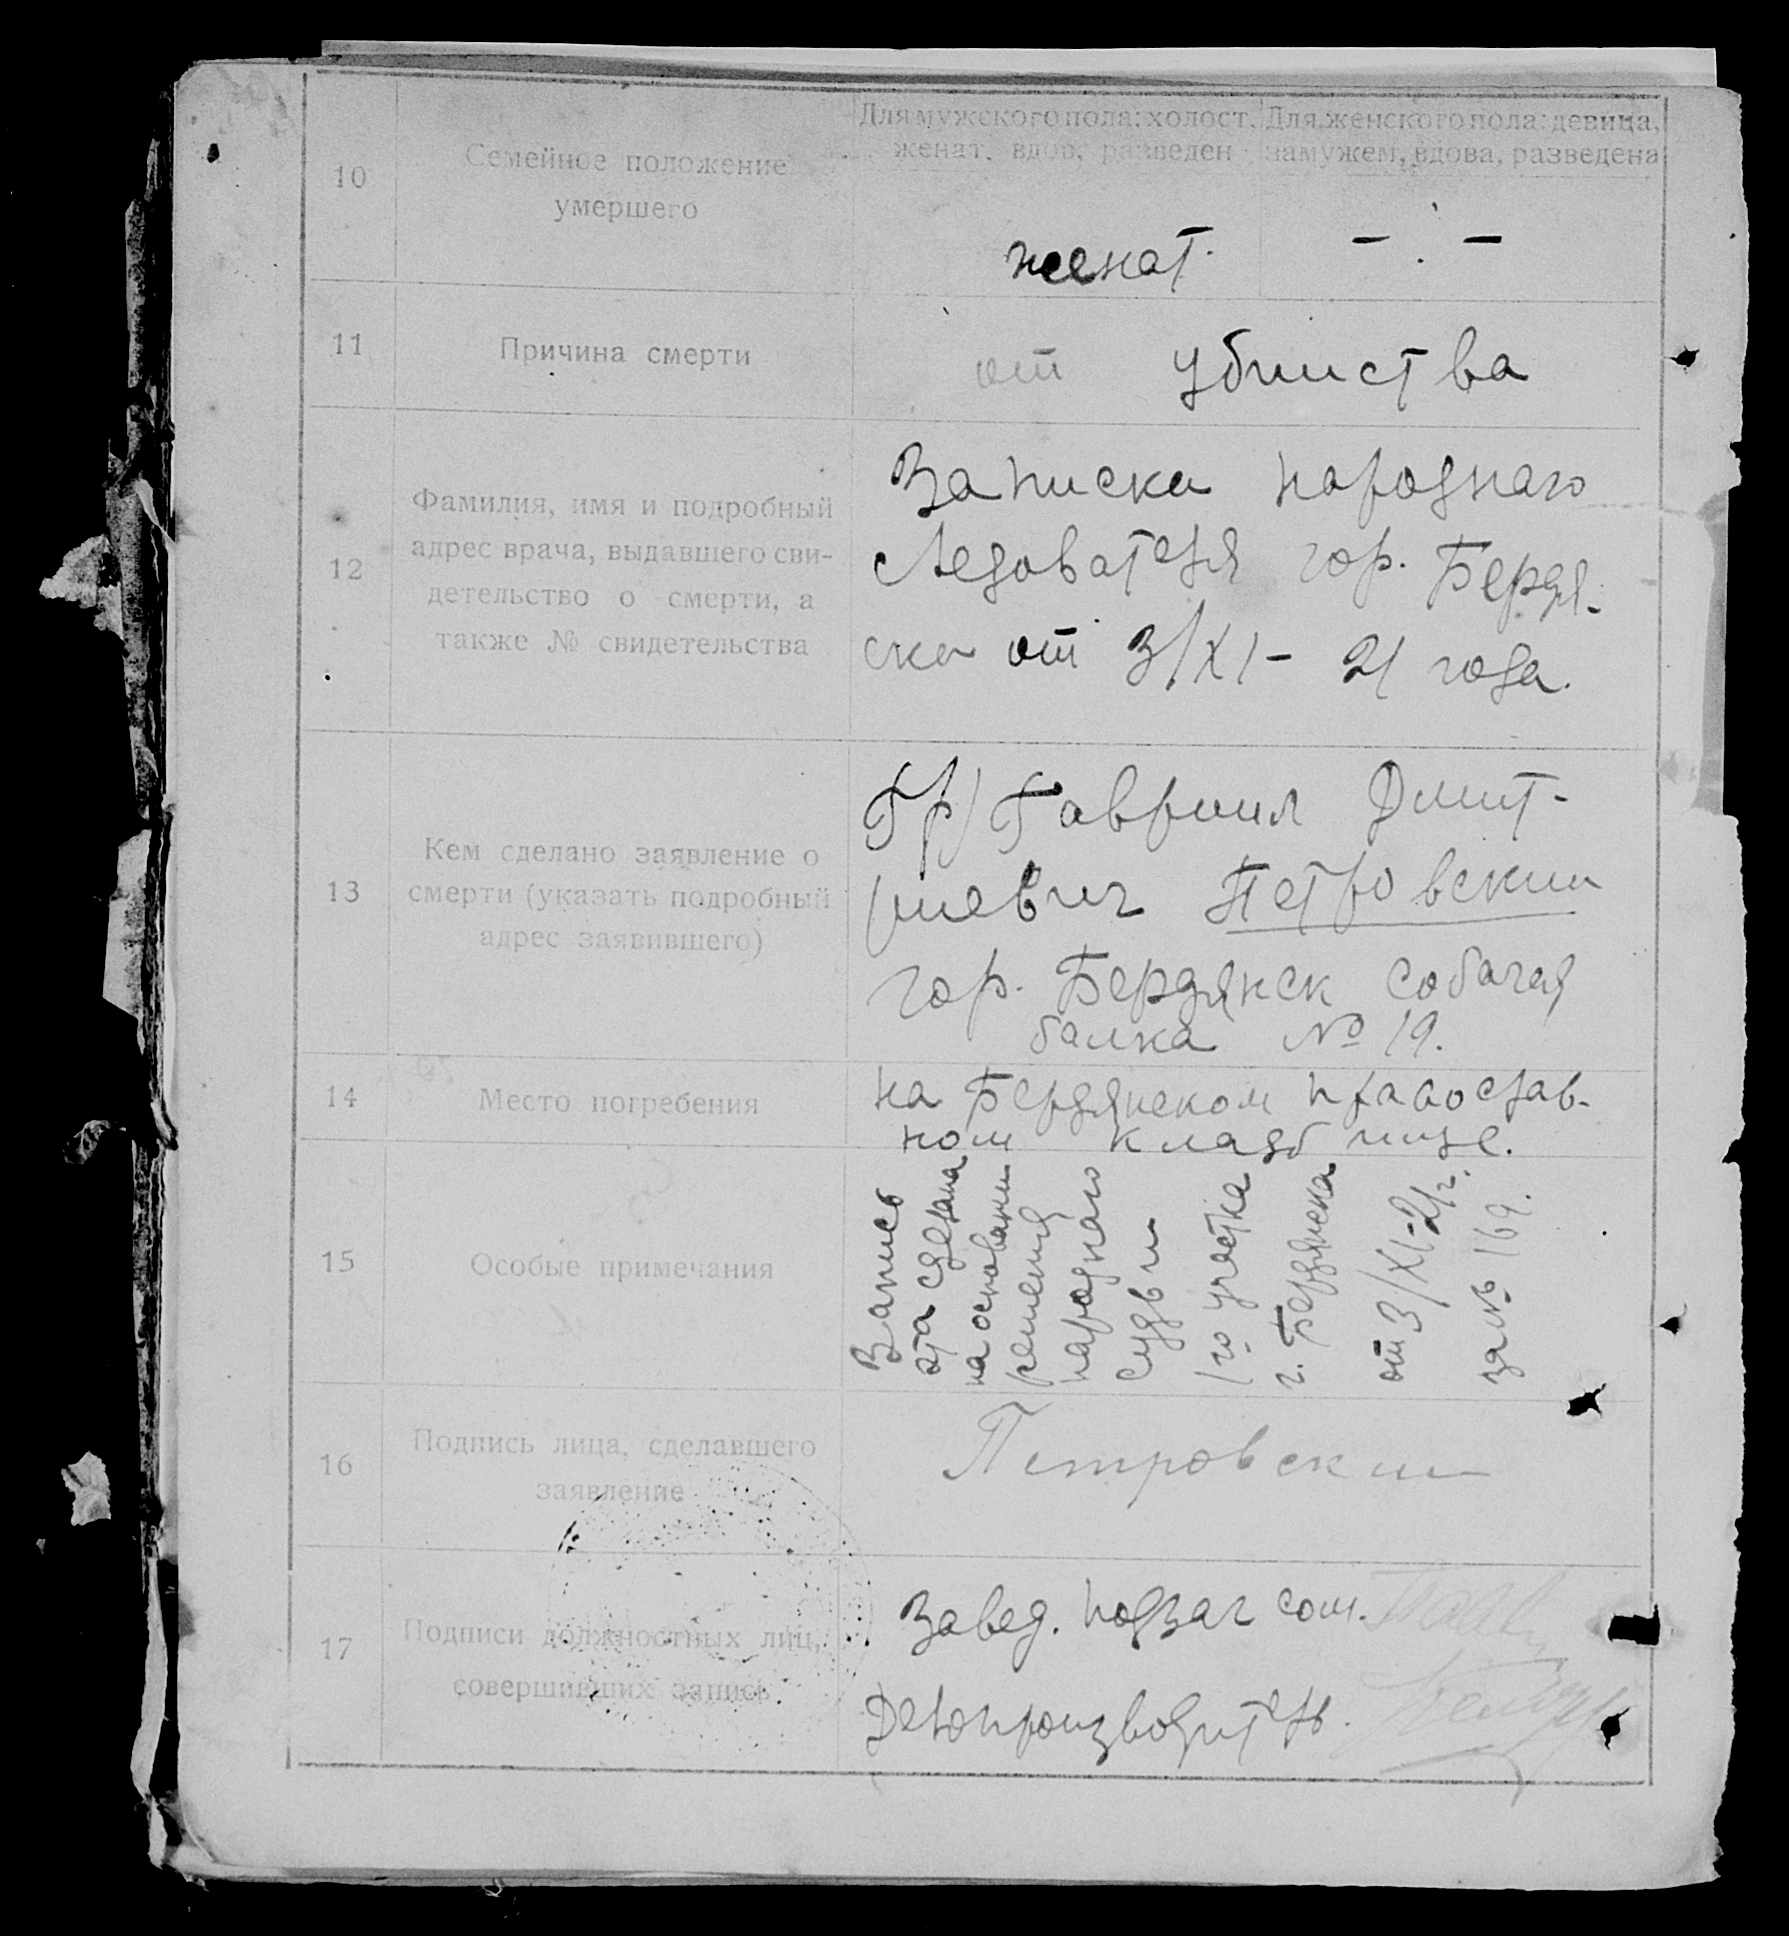 10
Семейное положение
умершего
Для мужского пола: холост,
женат, вдов, разведен
Для женского пола: девица,
замужем, вдова, разведена
женат.
— . —
11
Причина смерти
от убииства
12
Фамилия, имя и подробный
адрес врача, выдавшего сви-
детельство о смерти, а
также № свидетельства
Записки народнаго
следователя гор. Бердя-
ска от 3/XI - 21 года.
13
Кем сделано заявление о
смерти (указать подробный
адрес заявившего)
Гр) Гавриил Дмит-
риевич Петровскии
гор. Бердянск Собачая
балка № 19.
14
Место погребения
на Бердянском православ-
ном кладбище.
15
Особые примечания
Запись
эта сделана
на основании
решения
народнаго
судьи
1го участка
г. Бердянска
от 3/XI-21г.
за № 169.
16
Подпись лица, сделавшего
заявление
Петровскии
17
Подписи должностных лиц,
совершивших запись
Завед. подзаг сом.
Делопроизводитель.